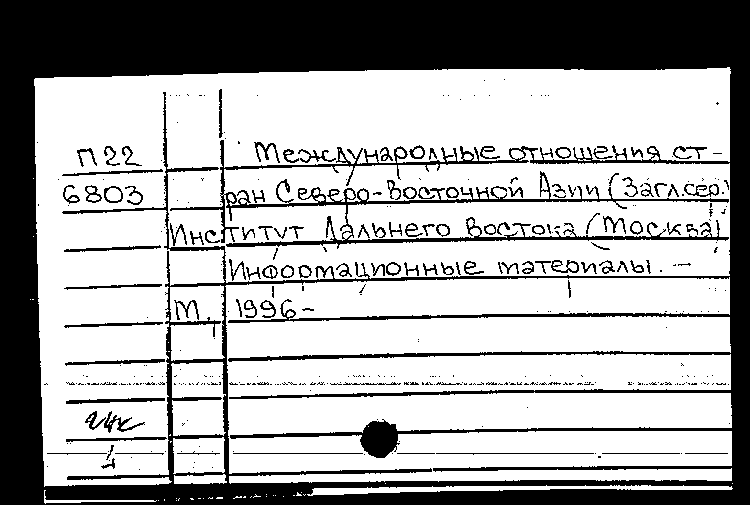 П22 Международные отношения ст-
6803 ран Северо-Восточной Азии (Загл.сер.)
Институт Дальнего Востока (Москва)
Информационные материалы. —
М., 1996-
1